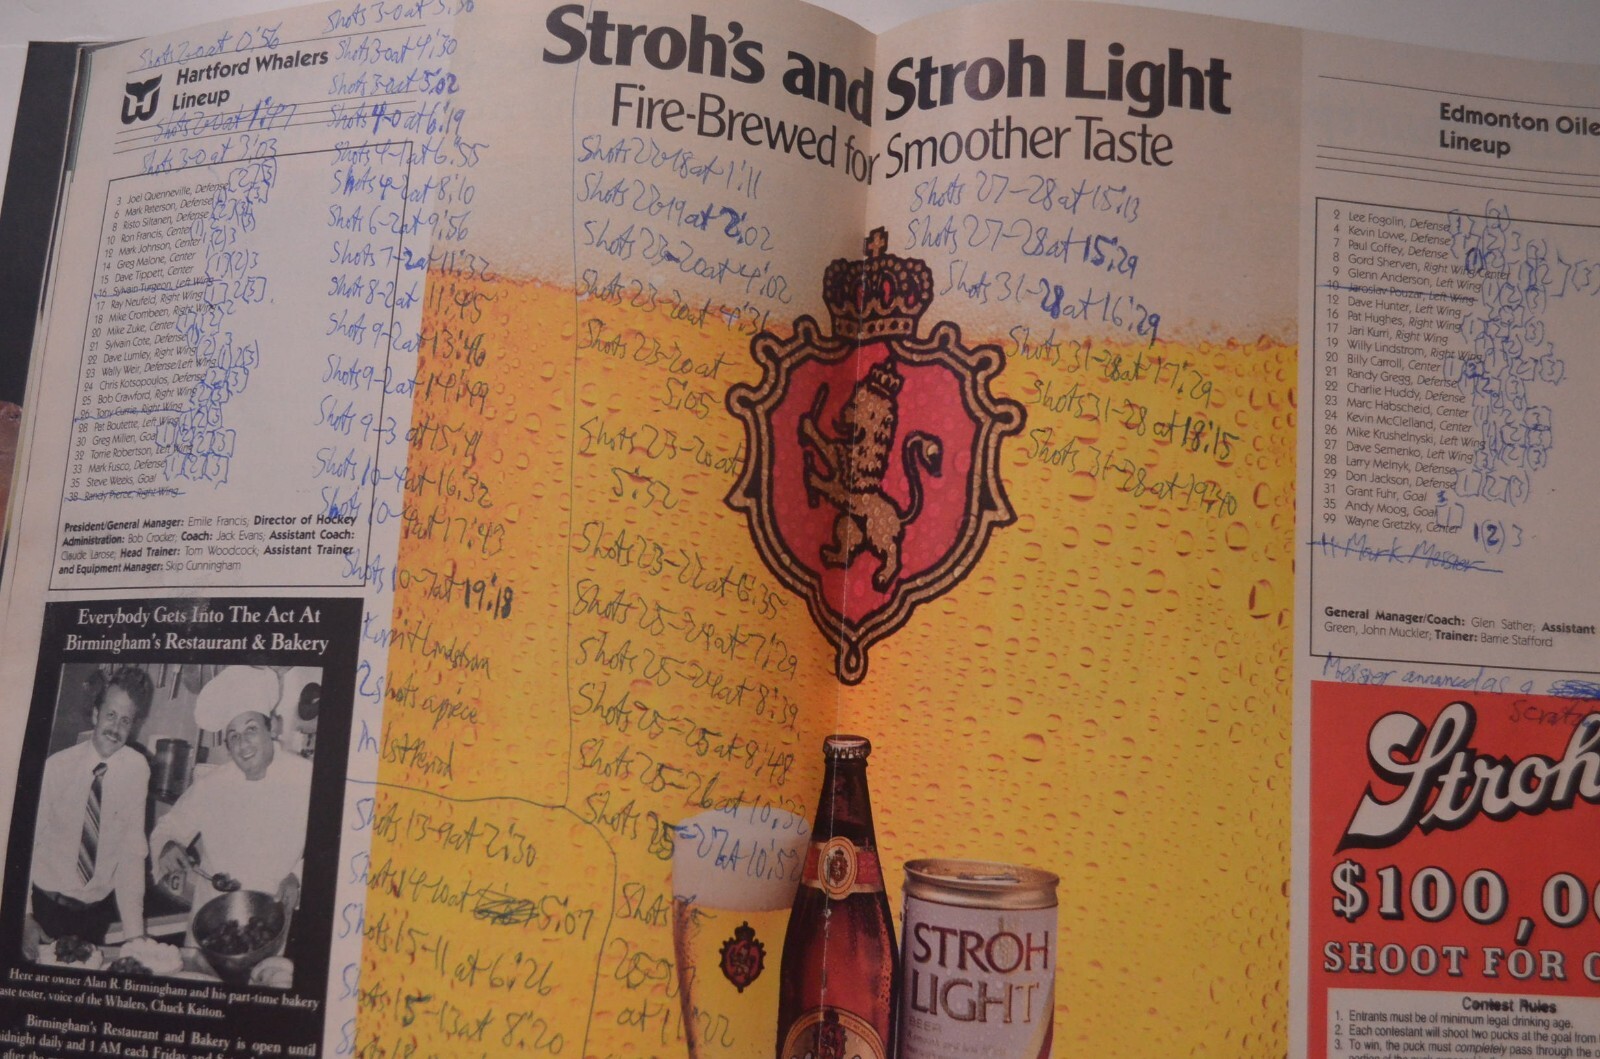 Shots 2-0 at 0:56
Shots 3-0 at 3:30
Hartford Whalers
Lineup
Shots 3-0 at 4:30
Shots 3-0 at 5:02
Shots 4-0 at 6:19
Shots 3-0 at 3:03
Shots 4-1 at 6:55
Shots 4-2 at 8:10
Shots 6-2 at 9:56
Shots 7-2 at 11:32
Shots 8-2 at 11:45
Shots 9-2 at 13:46
Shots 9-2 at 14:49
Shots 9-3 at 15:41
Shots 10-4 at 16:32
Shots 10-4 at 17:43
Shots 10-7 at 19:18
Kurri + Lindstrom
2 shots apiece
in 1st Period
Shots 13-9 at 2:30
Shots 14-10 at 5:07
Shots 15-11 at 6:26
Shots 15-13 at 8:20
3 Joel Quenneville, Defense
6 Mark Paterson, Defense
8 Risto Siltanen, Defense
10 Ron Francis, Center
12 Mark Johnson, Center
14 Greg Malone, Center
15 Dave Tippett, Center
16 Sylvain Turgeon, Left Wing
17 Ray Neufeld, Right Wing
18 Mike Crombeen, Right Wing
20 Mike Zuke, Center
21 Sylvain Cote, Defense
22 Dave Lumley, Right Wing
23 Wally Weir, Defense/Left Wing
24 Chris Kotsopoulos, Defense
25 Bob Crawford, Right Wing
26 Tony Currie, Right Wing
28 Pat Boutette, Left Wing
30 Greg Millen, Goal
32 Torrie Robertson, Left Wing
33 Mark Fusco, Defense
35 Steve Weeks, Goal
38 Randy Pierce, Right Wing
President/General Manager: Emile Francis; Director of Hockey
Administration: Bob Crocker; Coach: Jack Evans; Assistant Coach:
Claude Larose; Head Trainer: Tom Woodcock; Assistant Trainer
and Equipment Manager: Skip Cunningham
Everybody Gets Into The Act At
Birmingham's Restaurant & Bakery
Here are owner Alan R. Birmingham and his part-time bakery
taste tester, voice of the Whalers, Chuck Kaiton.
Birmingham's Restaurant and Bakery is open until
midnight daily and 1 AM each Friday and
Stroh's and Stroh Light
Fire-Brewed for Smoother Taste
Shots 22-18 at 1:11
Shots 22-19 at 2:02
Shots 23-20 at 4:02
Shots 23-20 at 4:31
Shots 23-20 at
5:05
Shots 23-20 at
5:52
Shots 23-22 at 6:35
Shots 25-24 at 7:29
Shots 25-24 at 8:39
Shots 25-25 at 8:48
Shots 25-26 at 10:32
Shots 25-27 at 10:52
Shots
at 11:22
Shots 27-28 at 15:13
Shots 27-28 at 15:29
Shots 31-28 at 16:29
Shots 31-28 at 17:29
Shots 31-28 at 18:15
Shots 31-28 at 19:40
STROH
LIGHT
BEER
Edmonton Oile
Lineup
2 Lee Fogolin, Defense
4 Kevin Lowe, Defense
7 Paul Coffey, Defense
8 Gord Sherven, Right Wing
9 Glenn Anderson, Left Wing
10 Jaroslav Pouzar, Left Wing
12 Dave Hunter, Left Wing
16 Pat Hughes, Right Wing
17 Jari Kurri, Right Wing
19 Willy Lindstrom, Right Wing
20 Billy Carroll, Center
21 Randy Gregg, Defense
22 Charlie Huddy, Defense
23 Marc Habscheid, Center
24 Kevin McClelland, Center
26 Mike Krushelnyski, Left Wing
27 Dave Semenko, Left Wing
28 Larry Melnyk, Defense
29 Don Jackson, Defense
31 Grant Fuhr, Goal
35 Andy Moog, Goal
99 Wayne Gretzky, Center 1(2)3
11 Mark Messier
General Manager/Coach: Glen Sather; Assistant
Green, John Muckler; Trainer: Barrie Stafford
Messier announced as a
scratch
Stroh
$100,00
SHOOT FOR
Contest Rules
1. Entrants must be of minimum legal drinking age.
2. Each contestant will shoot two pucks at the goal from
3. To win, the puck must completely pass through the